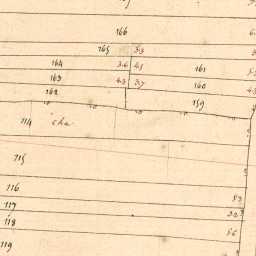 166
165 33
164 36 45 161
163 43 37 160
162 159
114
115
116
117 32
118 56
119